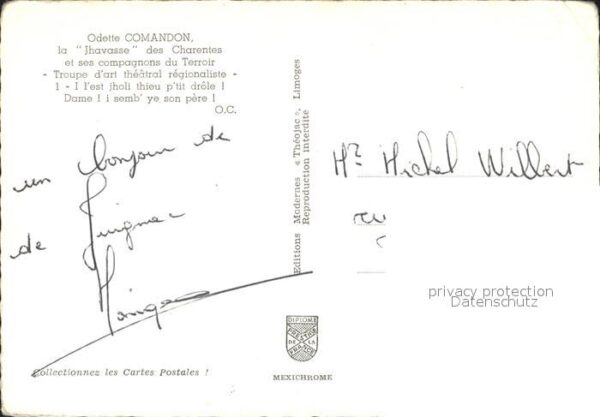 Odette COMANDON,
la "Jhavasse" des Charentes
et ses compagnons du Terroir
- Troupe d'art théâtral régionaliste -
1 - I l'est jholi thieu p'tit drôle !
Dame ! i semb' ye son père !
O.C.
un bonjour de
de
Editions Modernes « Théojac », Limoges
Reproduction interdite
Mr Michel Willert
privacy protection
Datenschutz
DIPLOME
DE LA
FRANCE
Collectionnez les Cartes Postales !
MEXICHROME